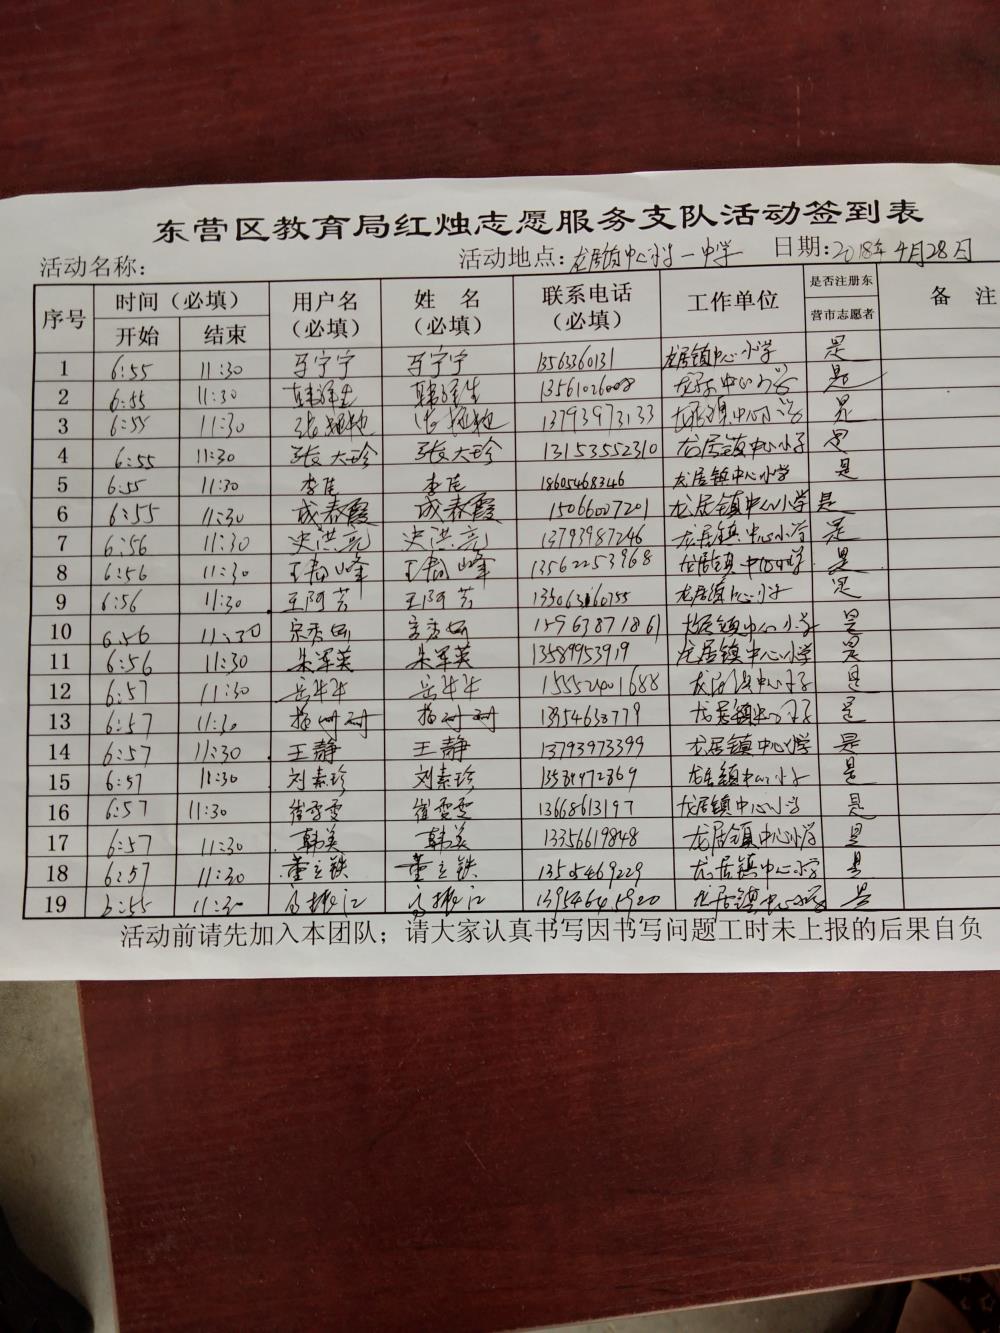 东营区教育局红烛志愿服务支队活动签到表
活动名称： 活动地点：龙居镇中心小学—中学 日期：2018年4月28日
序号 时间（必填） 用户名（必填） 姓名（必填） 联系电话（必填） 工作单位 是否注册东营市志愿者 备注
开始 结束
1 6:55 11:30 马宁宁 马宁宁 13563360131 龙居镇中心小学 是
2 6:55 11:30 13561026008 中心小学 是
3 6:55 11:30 13793973133 中心小学 是
4 6:55 11:30 张大珍 张大珍 13153552310 龙居镇中心小学 是
5 6:55 11:30 18605468346 龙居镇中心小学 是
6 6:55 11:30 成春霞 成春霞 15066007201 龙居镇中心小学 是
7 6:56 11:30 史洪亮 史洪亮 13793987246 龙居镇中心小学 是
8 6:56 11:30 13562253968 龙居镇中心小学 是
9 6:56 11:30 王阿芳 王阿芳 龙居镇中心小学 是
10 6:56 11:30 15963871861 龙居镇中心小学 是
11 6:56 11:30 朱军英 朱军英 13589953919 龙居镇中心小学 是
12 6:57 11:30 岳牛牛 岳牛牛 15552401688 龙居镇中心小学 是
13 6:57 11:30 13954638779 龙居镇中心小学 是
14 6:57 11:30 王静 王静 13793973399 龙居镇中心小学 是
15 6:57 11:30 刘素珍 刘素珍 龙居镇中心小学 是
16 6:57 11:30 崔雪雯 崔雯雯 13668613197 龙居镇中心小学 是
17 6:57 11:30 韩美 韩美 13356619848 龙居镇中心小学 是
18 6:57 11:30 董立铁 董立铁 13505469229 龙居镇中心小学 是
19 6:55 11:30 高振江 高振江 龙居镇中心小学 是
活动前请先加入本团队；请大家认真书写因书写问题工时未上报的后果自负